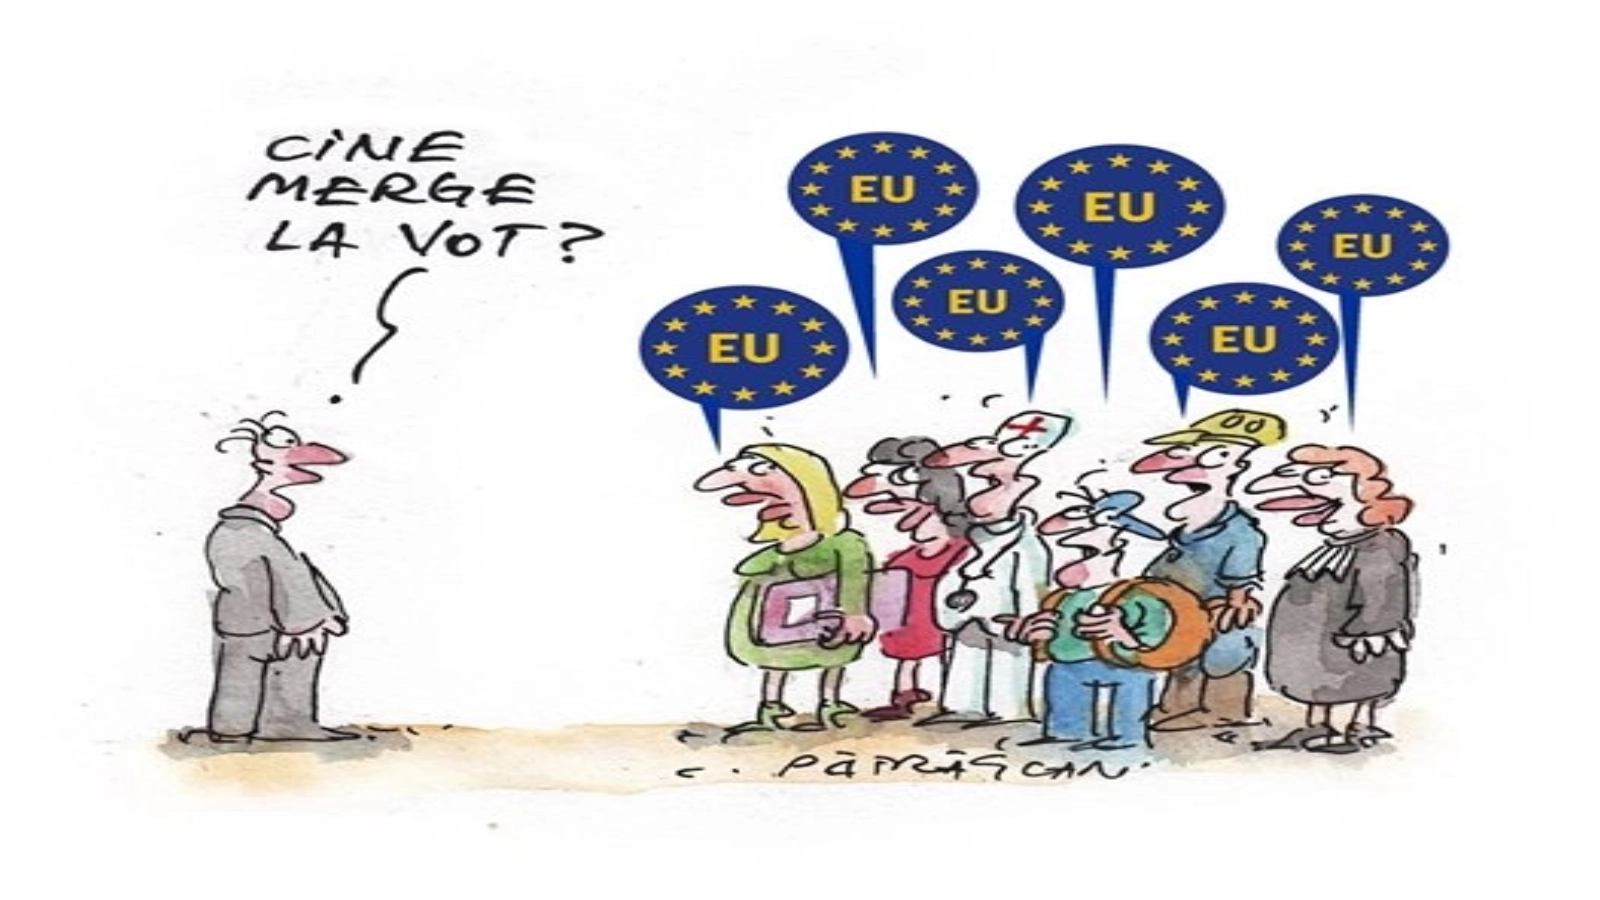 CINE
MERGE
LA VOT?
EU
EU
EU
EU
EU
EU
C. PĂTRĂȘCAN